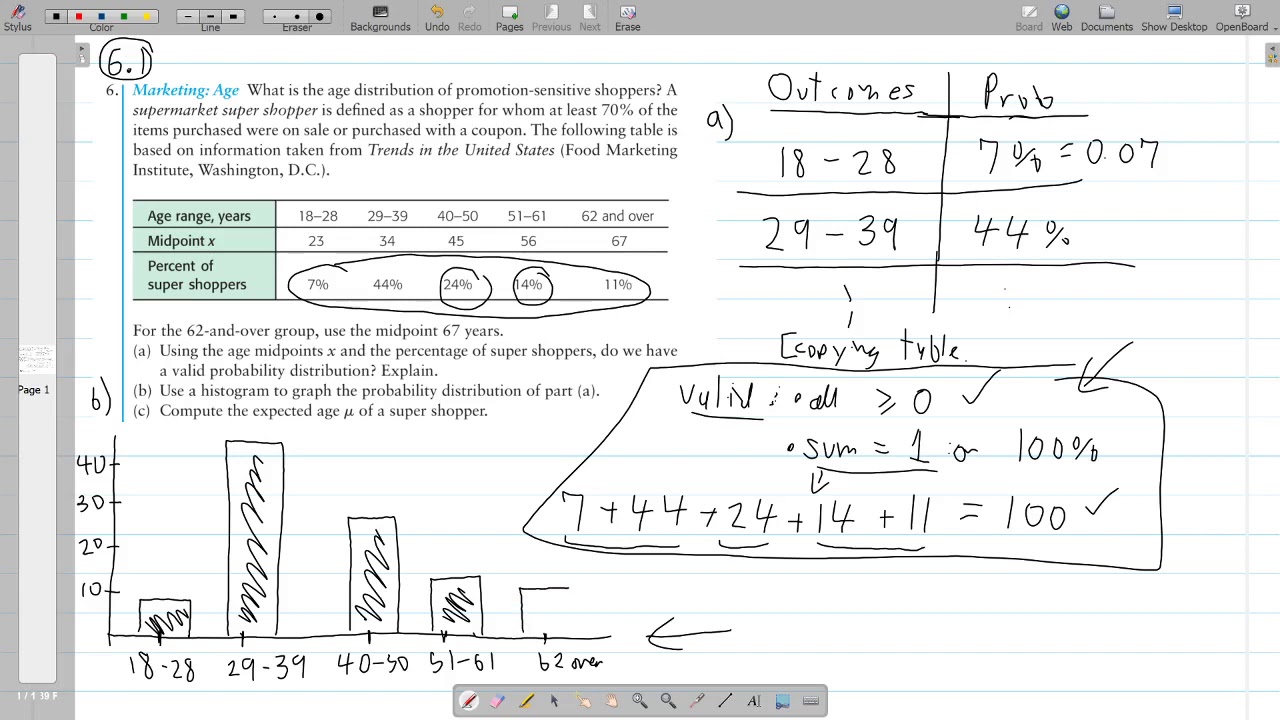 Stylus
Color
Line
Eraser
Backgrounds
Undo
Redo
Pages
Previous
Next
Erase
Board
Web
Documents
Show Desktop
OpenBoard
Page 1
1 / 1 39 F
6.1
6. Marketing: Age What is the age distribution of promotion-sensitive shoppers? A
supermarket super shopper is defined as a shopper for whom at least 70% of the
items purchased were on sale or purchased with a coupon. The following table is
based on information taken from Trends in the United States (Food Marketing
Institute, Washington, D.C.).
Age range, years 18–28 29–39 40–50 51–61 62 and over
Midpoint x 23 34 45 56 67
Percent of
super shoppers 7% 44% 24% 14% 11%
For the 62-and-over group, use the midpoint 67 years.
(a) Using the age midpoints x and the percentage of super shoppers, do we have
a valid probability distribution? Explain.
(b) Use a histogram to graph the probability distribution of part (a).
(c) Compute the expected age μ of a super shopper.
a)
Outcomes Prob
18 - 28 7% = 0.07
29 - 39 44%
[copying table.
valid : • all ≥ 0 ✓
• sum = 1 or 100%
7 + 44 + 24 + 14 + 11 = 100 ✓
b)
40
30
20
10
18-28 29-39 40-50 51-61 62 over